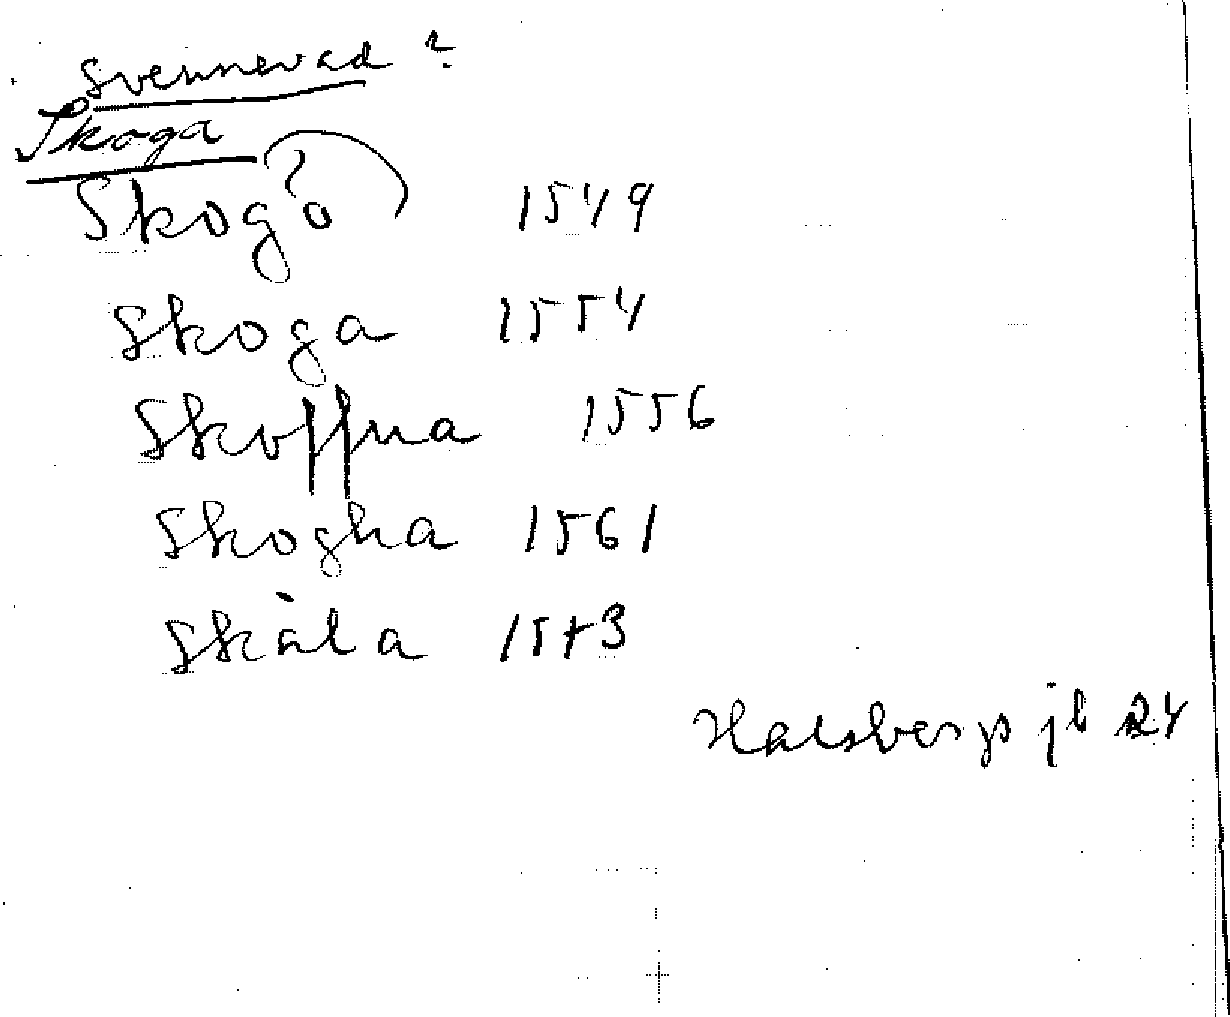 Svennevad ?
Skoga
Skogo 1549
Skoga 1554
Skoffua 1556
Skogha 1561
Skåla 1573
Halsbergs jb 24